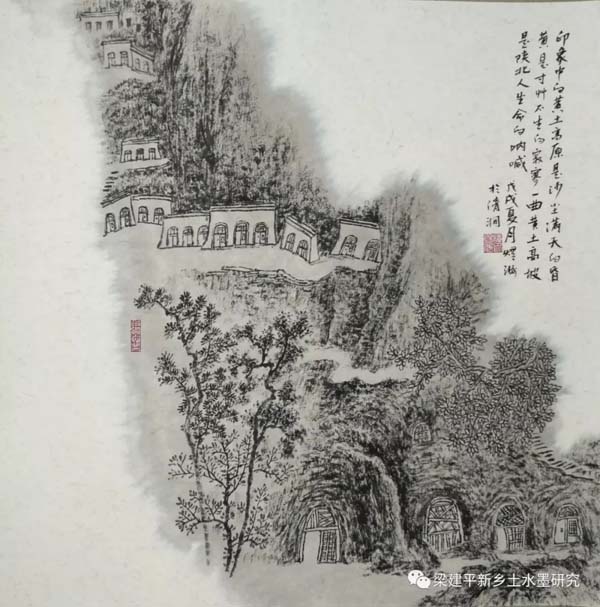 印象中的黄土高原是沙尘满天的昏
黄是寸艸不生的寂寥一曲黄土高坡
是陕北人生命的呐喊
戊戌夏月
於清涧
梁建平新乡土水墨研究